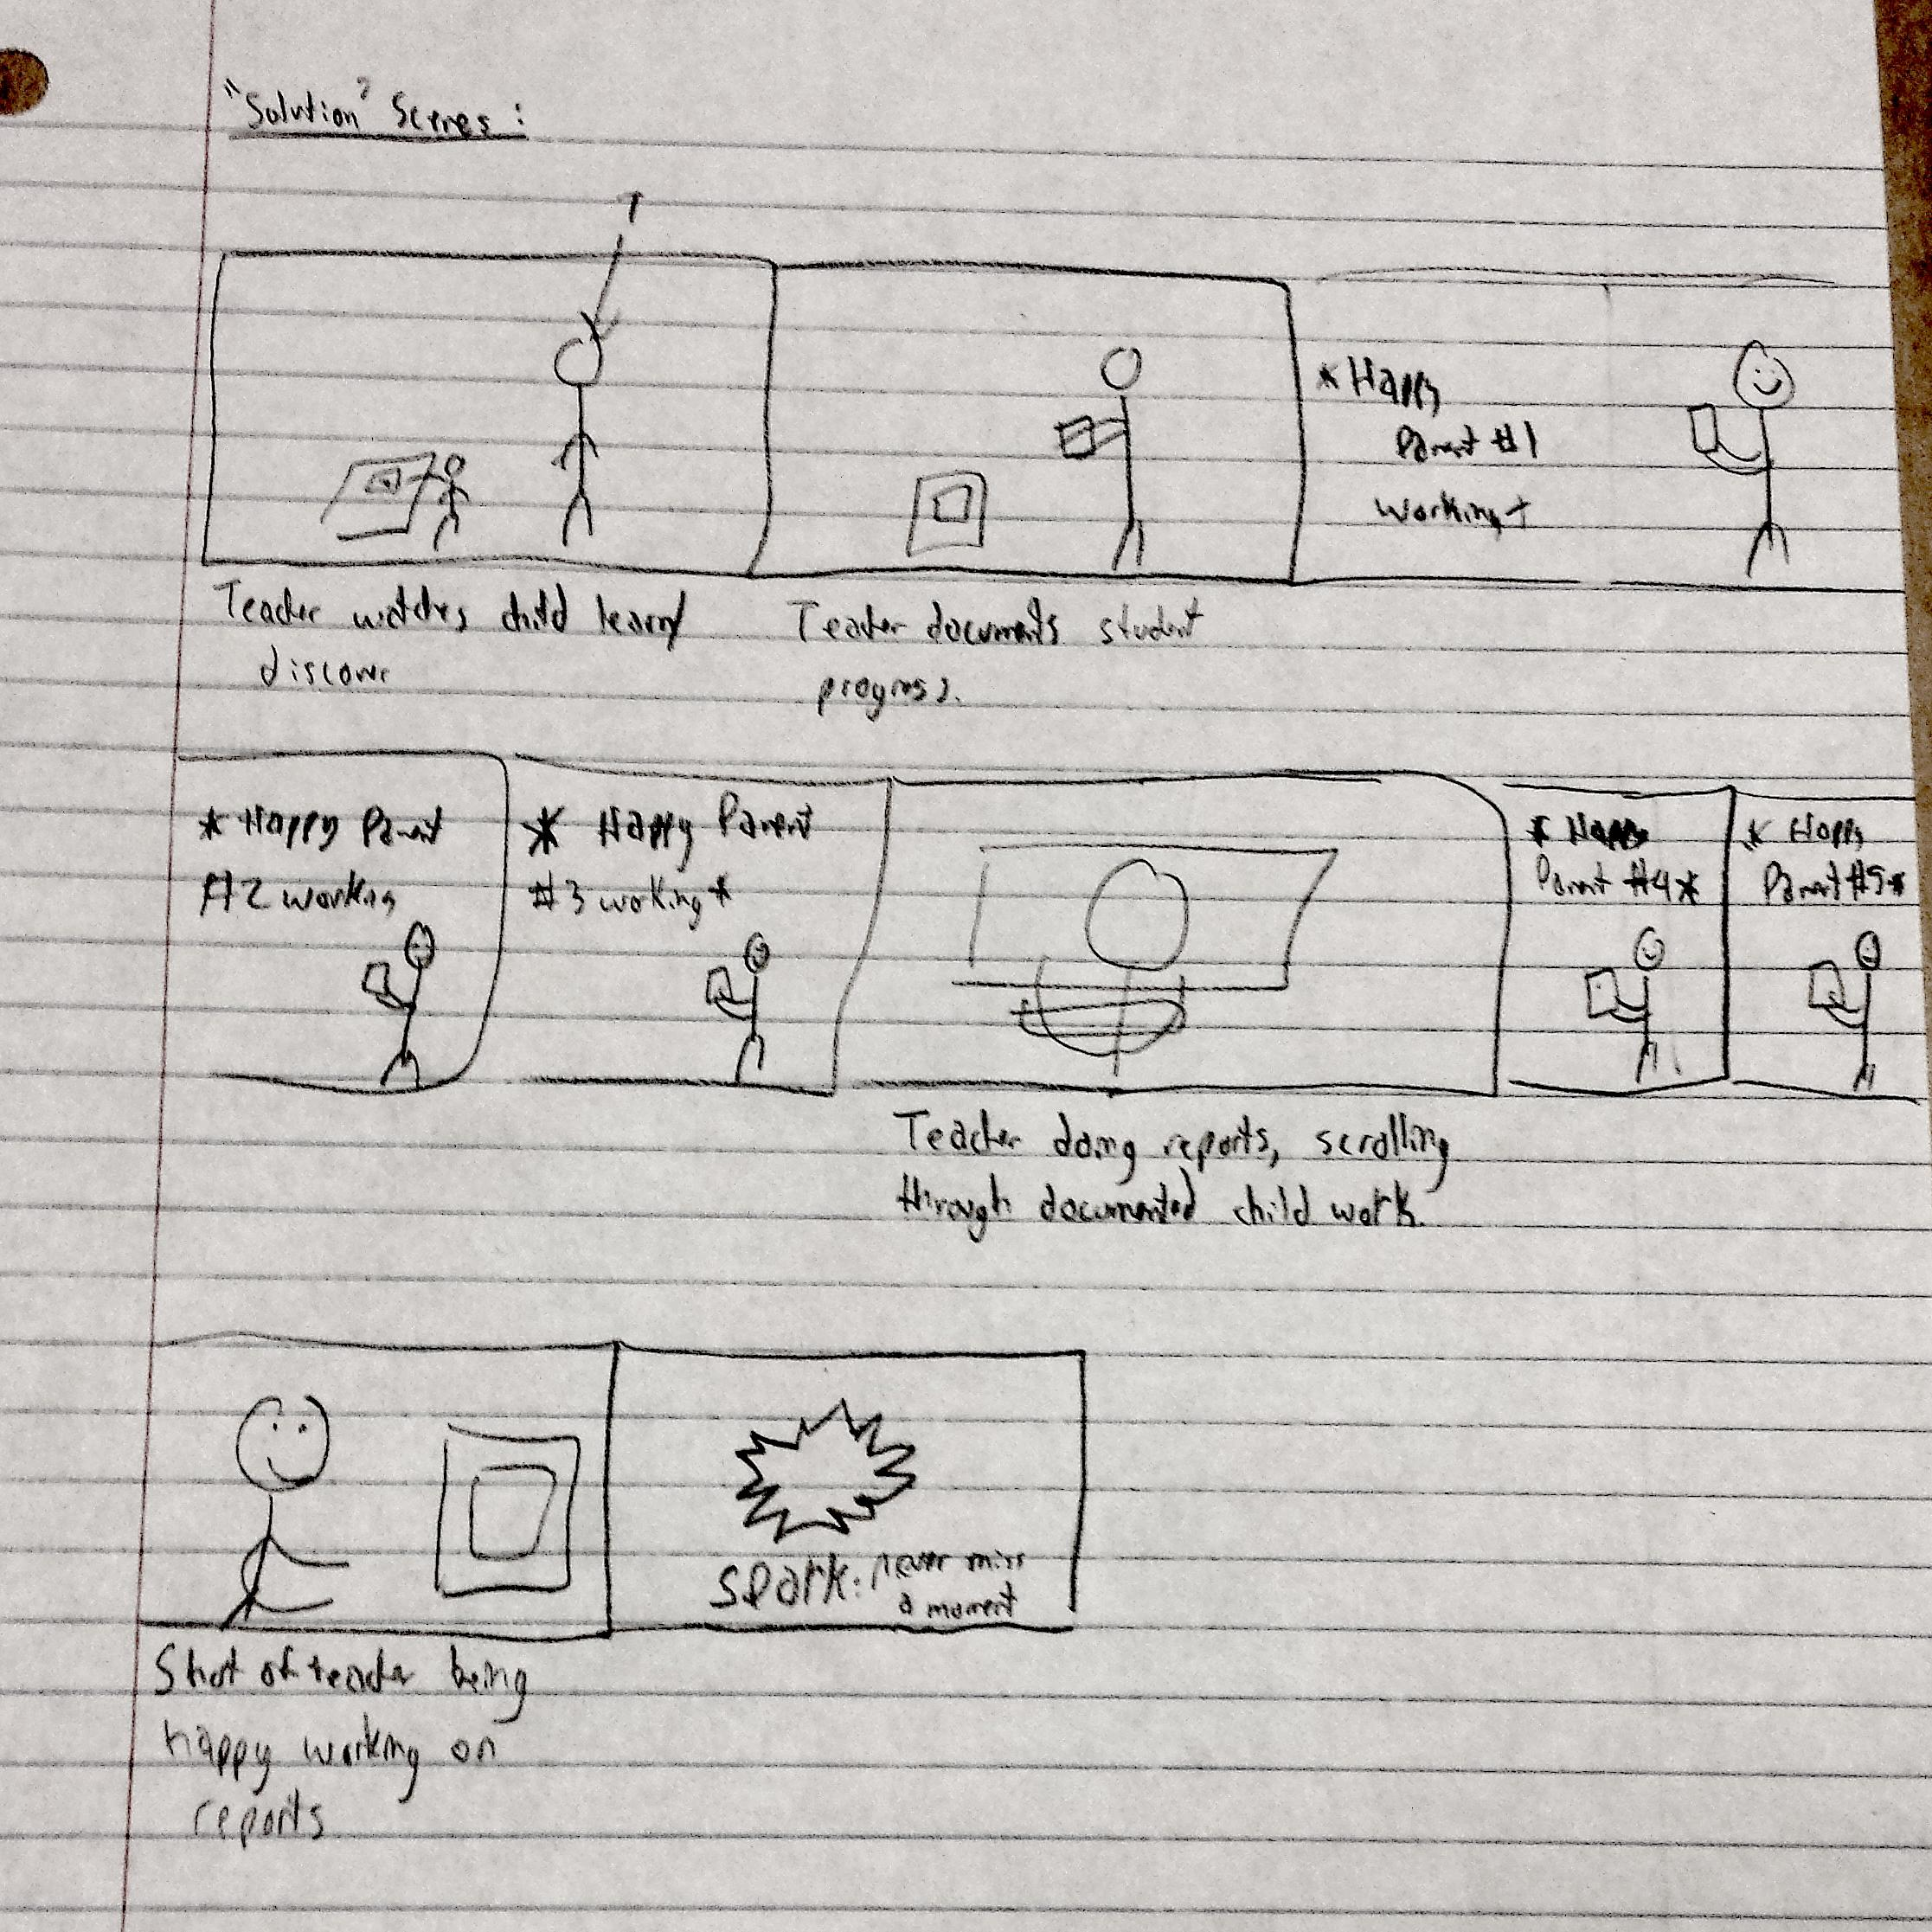 "Solution" Scenes:
T
* Happy
Parent #1
working *
Teacher watches child learn/
discover
Teacher documents student
progress.
* Happy Parent
#2 working
* Happy Parent
#3 working *
* Happy
Parent #4 *
* Happy
Parent #5 *
Teacher doing reports, scrolling
through documented child work.
Spark: never miss
a moment
Shot of teacher being
happy working on
reports